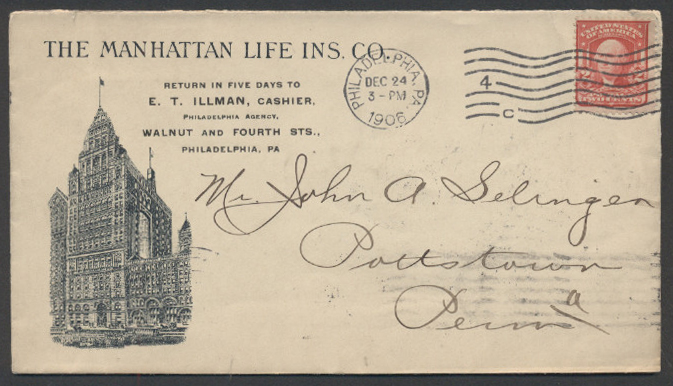 THE MANHATTAN LIFE INS. CO.
RETURN IN FIVE DAYS TO
E. T. ILLMAN, CASHIER,
PHILADELPHIA AGENCY,
WALNUT AND FOURTH STS.,
PHILADELPHIA, PA
PHILADELPHIA, PA.
DEC 24
3-PM
1906
4
C
UNITED STATES
OF AMERICA
TWO CENTS
Mr. John A Selinger
Pottstown
Penna